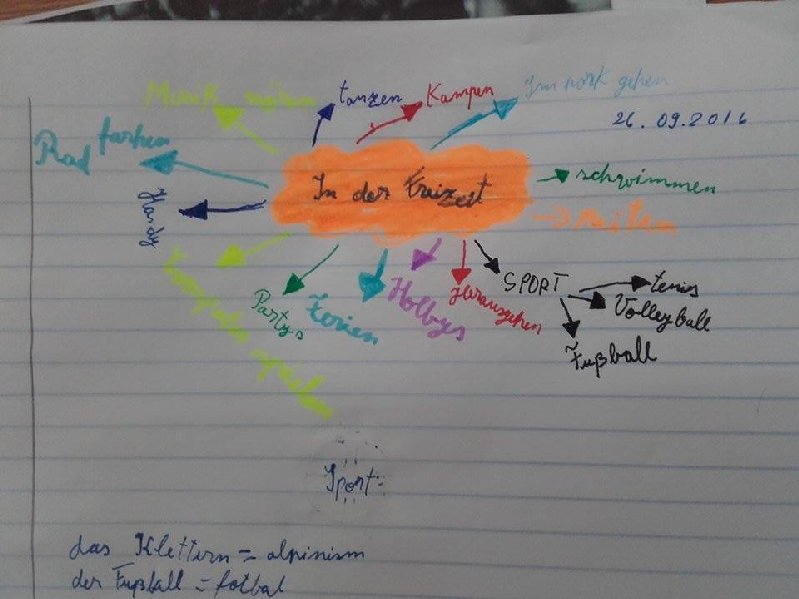 Musik
tanzen
Kampen
gehen
26.09.2016
Rad farhen
schwimmen
In der Fraizeit
Handy
reiten
SPORT
tenis
Volleyball
Fußball
Partys
Ferien
Hobbys
Herausgehen
spielen
Sport
das Klettern = alpinism
der Fußball = fotbal